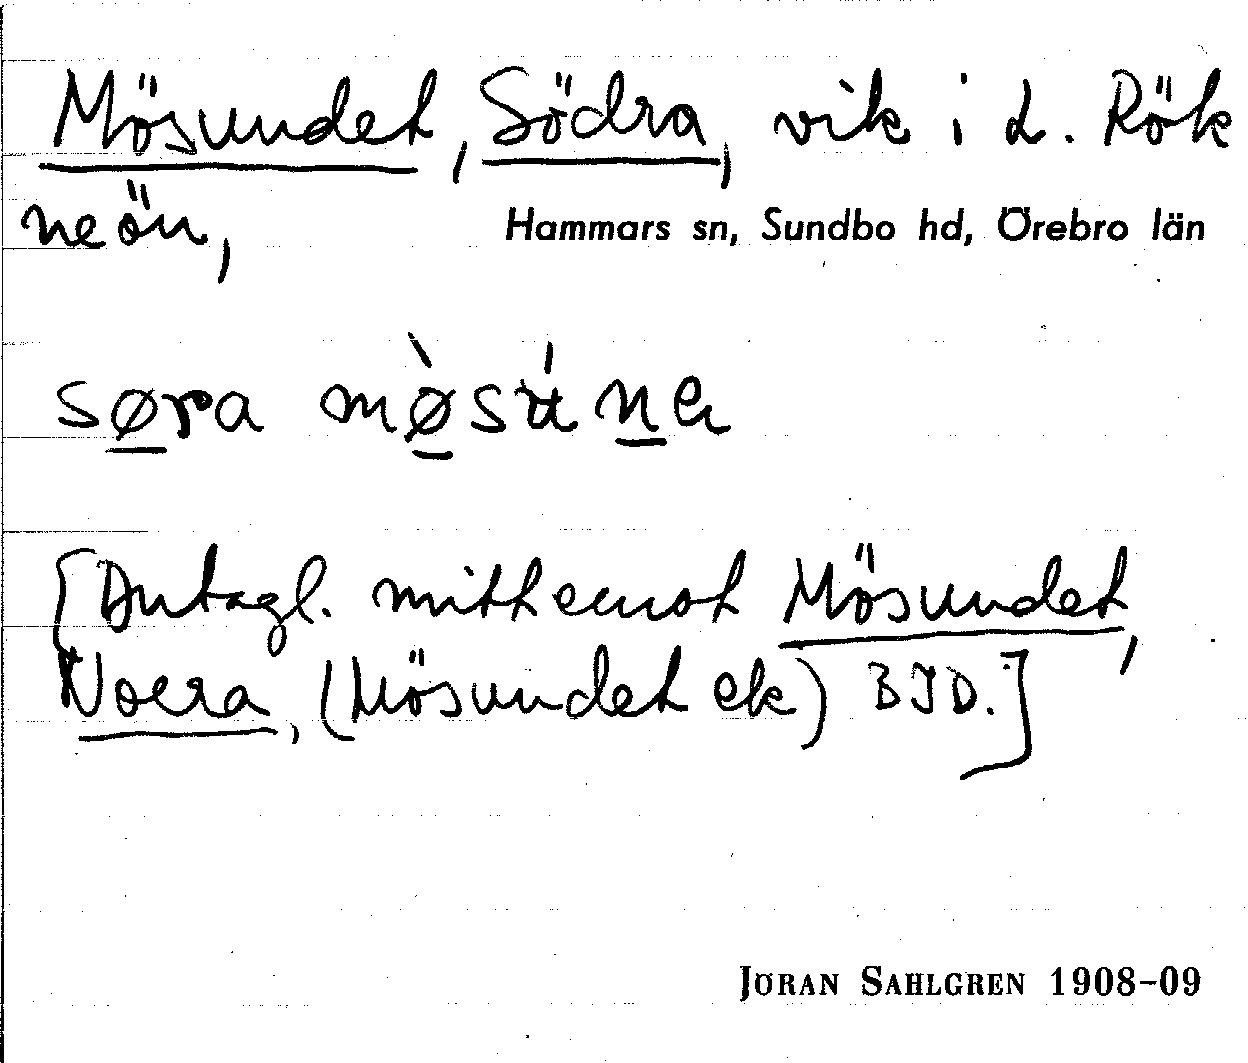 Mösundet, Södra, vik i L. Rök
neön, Hammars sn, Sundbo hd, Örebro län
søra mø̀súna
[Antagl. mitt emot Mösundet,
Norra, (Mösundet ek) BJD.]
JÖRAN SAHLGREN 1908–09